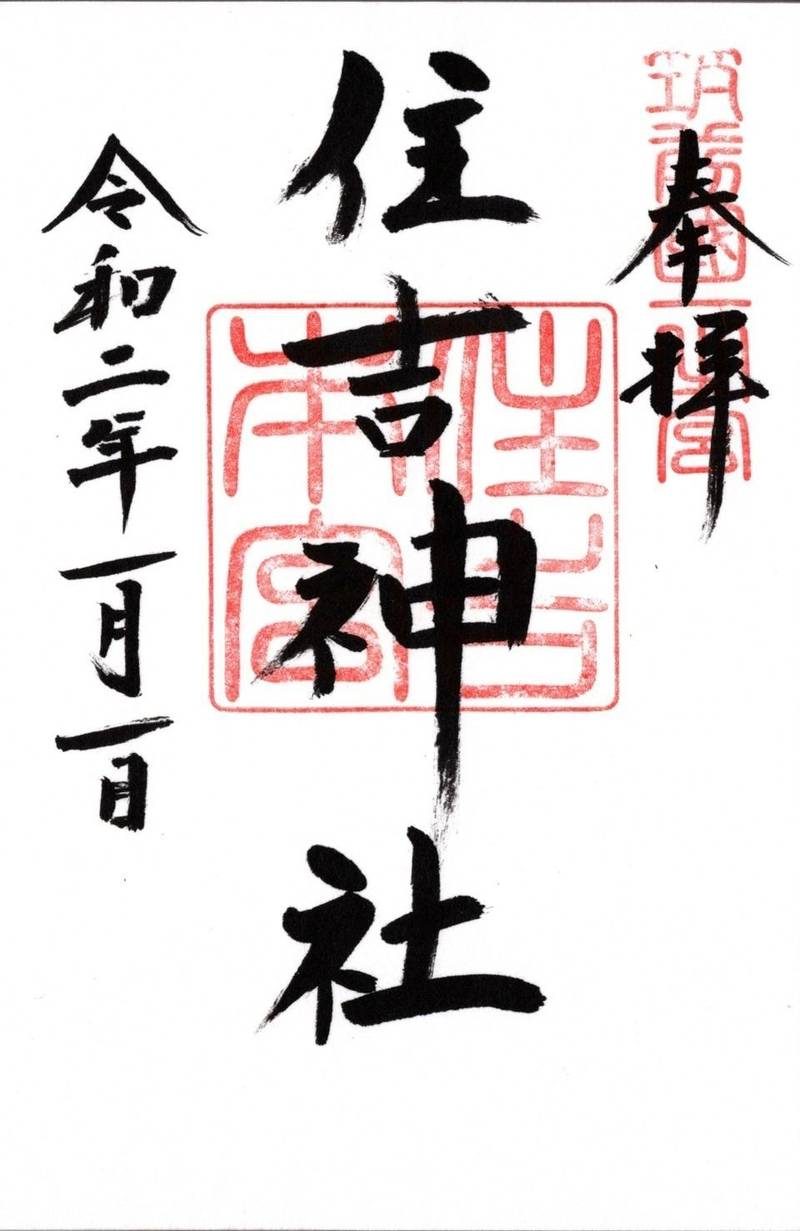 奉拝
筑前國一之宮
住吉神社
住吉本宮
令和二年一月一日